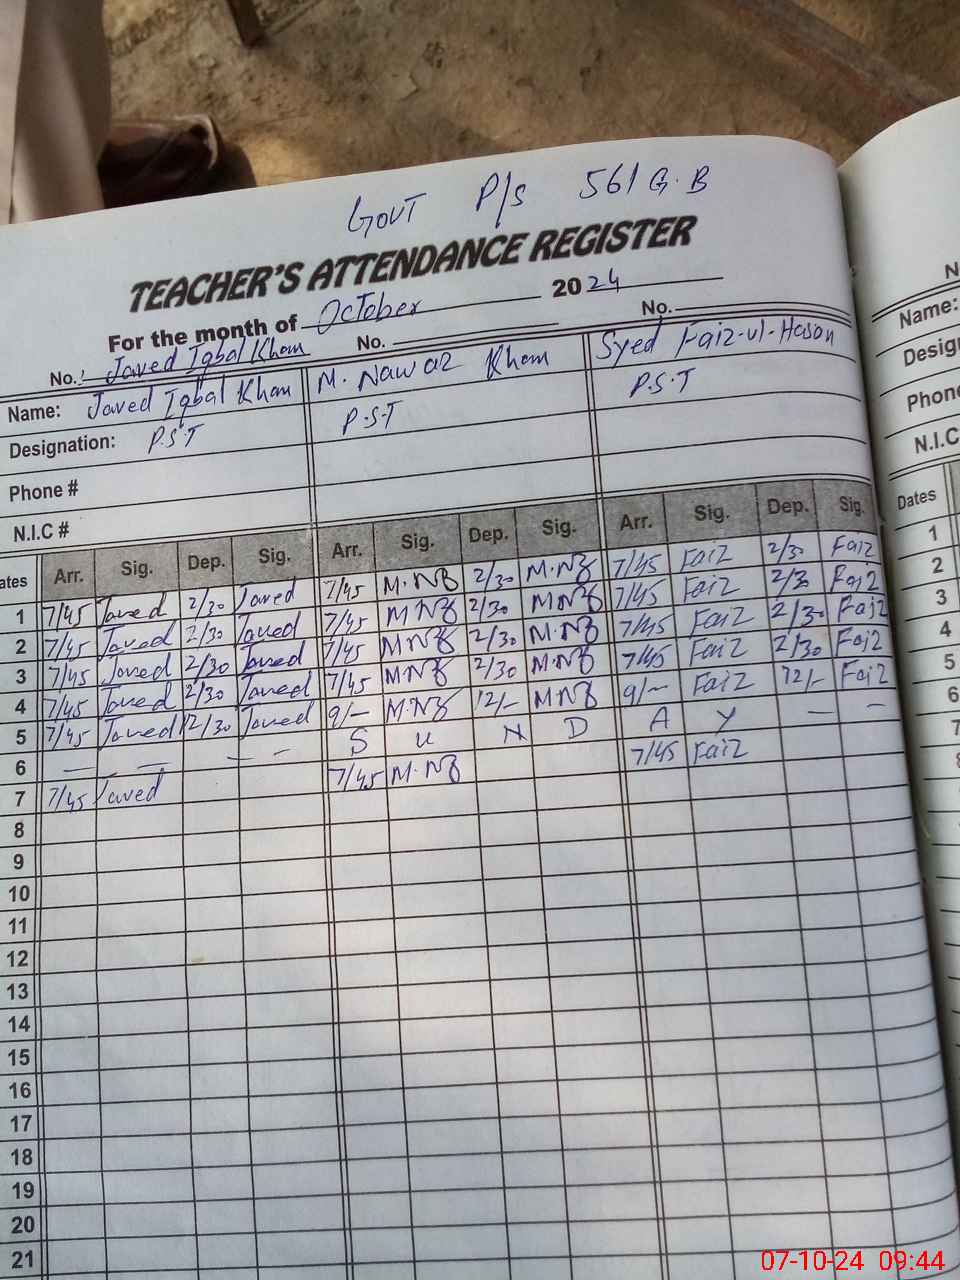 GOVT P/S 561 G.B
TEACHER'S ATTENDANCE REGISTER
For the month of October 2024
No. Javed Iqbal Khan No. No.
Name: Javed Iqbal Khan M. Nawaz Khan Syed Faiz-ul-Hasan
Designation: P.S.T P.S.T P.S.T
Phone #
N.I.C #
ates Arr. Sig. Dep. Sig. Arr. Sig. Dep. Sig. Arr. Sig. Dep. Sig.
1 7/45 Javed 2/30 Javed 7/45 M.NZ 2/30 M.NZ 7/45 Faiz 2/30 Faiz
2 7/45 Javed 2/30 Javed 7/45 M.NZ 2/30 M.NZ 7/45 Faiz 2/30 Faiz
3 7/45 Javed 2/30 Javed 7/45 M.NZ 2/30 M.NZ 7/45 Faiz 2/30 Faiz
4 7/45 Javed 2/30 Javed 7/45 M.NZ 2/30 M.NZ 7/45 Faiz 2/30 Faiz
5 7/45 Javed 12/30 Javed 9/- M.NZ 12/- M.NZ 9/- Faiz 12/- Faiz
6 — — — — S U N D A Y — —
7 7/45 Javed 7/45 M.NZ 7/45 Faiz
8
9
10
11
12
13
14
15
16
17
18
19
20
21
N
Name:
Desig
Phone
N.I.C
Dates
1
2
3
4
5
6
7
8
07-10-24 09:44